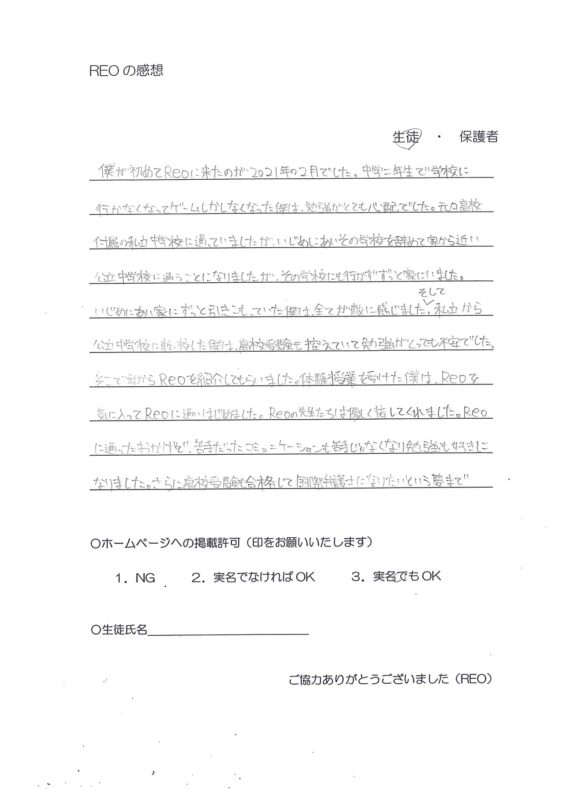 REOの感想
生徒 ・ 保護者
僕が初めてReoに来たのが2021年の2月でした。中学二年生で学校に
行かなくなってゲームしかしなくなった僕は、勉強がとても心配でした。元々高校
付属の私立中学校に通っていましたが、いじめにあいその学校を辞めて家から近い
公立中学校に通うことになりましたが、その学校にも行かずずっと家にいました。
いじめにあい家にずっと引きこもっていた僕は、全てが敵に感じました。そして私立から
公立中学校に転校した僕は、高校受験も控えていて勉強がとっても不安でした。
そこで母からReoを紹介してもらいました。体験授業を受けた僕は、Reoを
気に入ってReoに通いはじめました。Reoの先生たちは優しく話してくれました。Reo
に通ったおかげで、苦手だったコミュニケーションも苦手じゃなくなり勉強も好きに
なりました。さらに高校受験も合格して国際弁護士になりたいという夢まで
〇ホームページへの掲載許可(印をお願いいたします)
1．NG 2．実名でなければOK 3．実名でもOK
〇生徒氏名
ご協力ありがとうございました(REO)